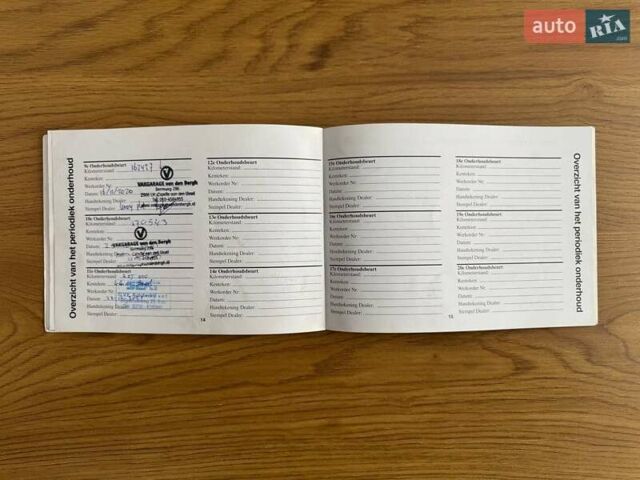 auto RIA.com
Overzicht van het periodiek onderhoud
9e Onderhoudsbeurt
Kilometerstand: 162427
Kenteken:
Werkorder Nr:
Datum: 16/11/2020
Handtekening Dealer:
Stempel Dealer:
VAKGARAGE van den Bergh
10e Onderhoudsbeurt
Kilometerstand:
Kenteken:
Werkorder Nr:
Datum:
Handtekening Dealer:
Stempel Dealer:
VAKGARAGE van den Bergh
11e Onderhoudsbeurt
Kilometerstand:
Kenteken:
Werkorder Nr:
Datum:
Handtekening Dealer:
Stempel Dealer:
12e Onderhoudsbeurt
Kilometerstand:
Kenteken:
Werkorder Nr:
Datum:
Handtekening Dealer:
Stempel Dealer:
13e Onderhoudsbeurt
Kilometerstand:
Kenteken:
Werkorder Nr:
Datum:
Handtekening Dealer:
Stempel Dealer:
14e Onderhoudsbeurt
Kilometerstand:
Kenteken:
Werkorder Nr:
Datum:
Handtekening Dealer:
Stempel Dealer:
14
15e Onderhoudsbeurt
Kilometerstand:
Kenteken:
Werkorder Nr:
Datum:
Handtekening Dealer:
Stempel Dealer:
16e Onderhoudsbeurt
Kilometerstand:
Kenteken:
Werkorder Nr:
Datum:
Handtekening Dealer:
Stempel Dealer:
17e Onderhoudsbeurt
Kilometerstand:
Kenteken:
Werkorder Nr:
Datum:
Handtekening Dealer:
Stempel Dealer:
18e Onderhoudsbeurt
Kilometerstand:
Kenteken:
Werkorder Nr:
Datum:
Handtekening Dealer:
Stempel Dealer:
19e Onderhoudsbeurt
Kilometerstand:
Kenteken:
Werkorder Nr:
Datum:
Handtekening Dealer:
Stempel Dealer:
20e Onderhoudsbeurt
Kilometerstand:
Kenteken:
Werkorder Nr:
Datum:
Handtekening Dealer:
Stempel Dealer:
15
Overzicht van het periodiek onderhoud